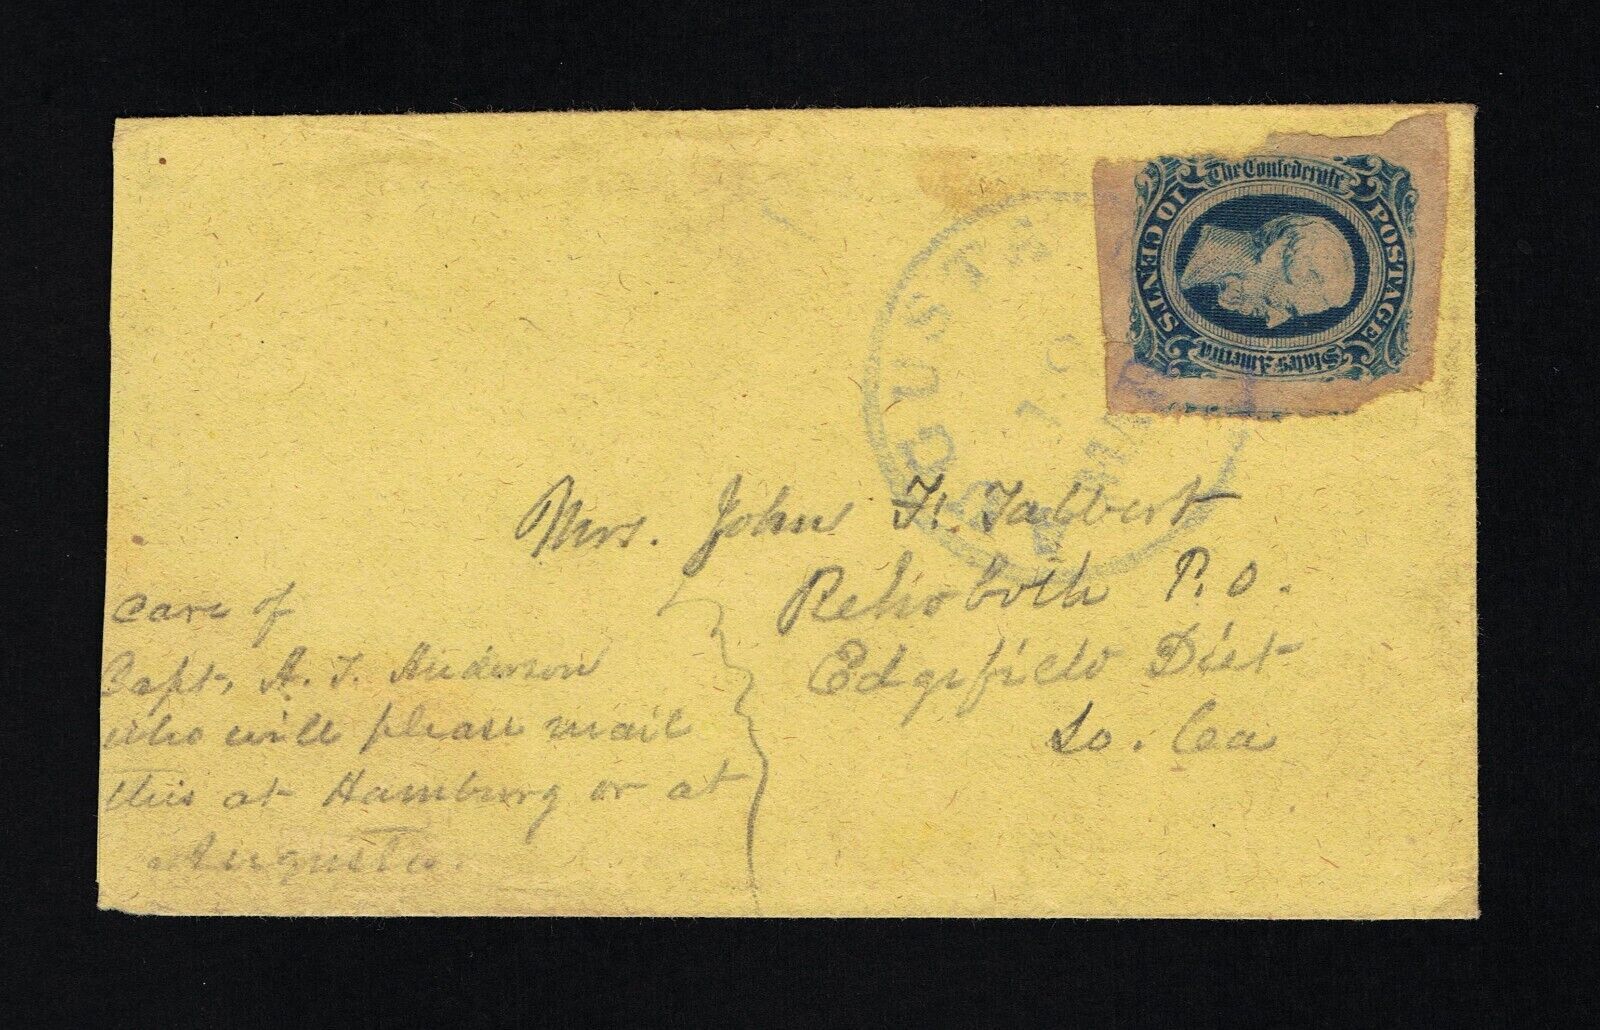 The Confederate
States America
POSTAGE
10 CENTS
GUSTA
MAR
Mrs. John F. Talbert
Rehoboth P.O.
Edgefield Dist
So. Ca
Care of
Capt. A. T. Anderson
who will please mail
this at Hamburg or at
Augusta.